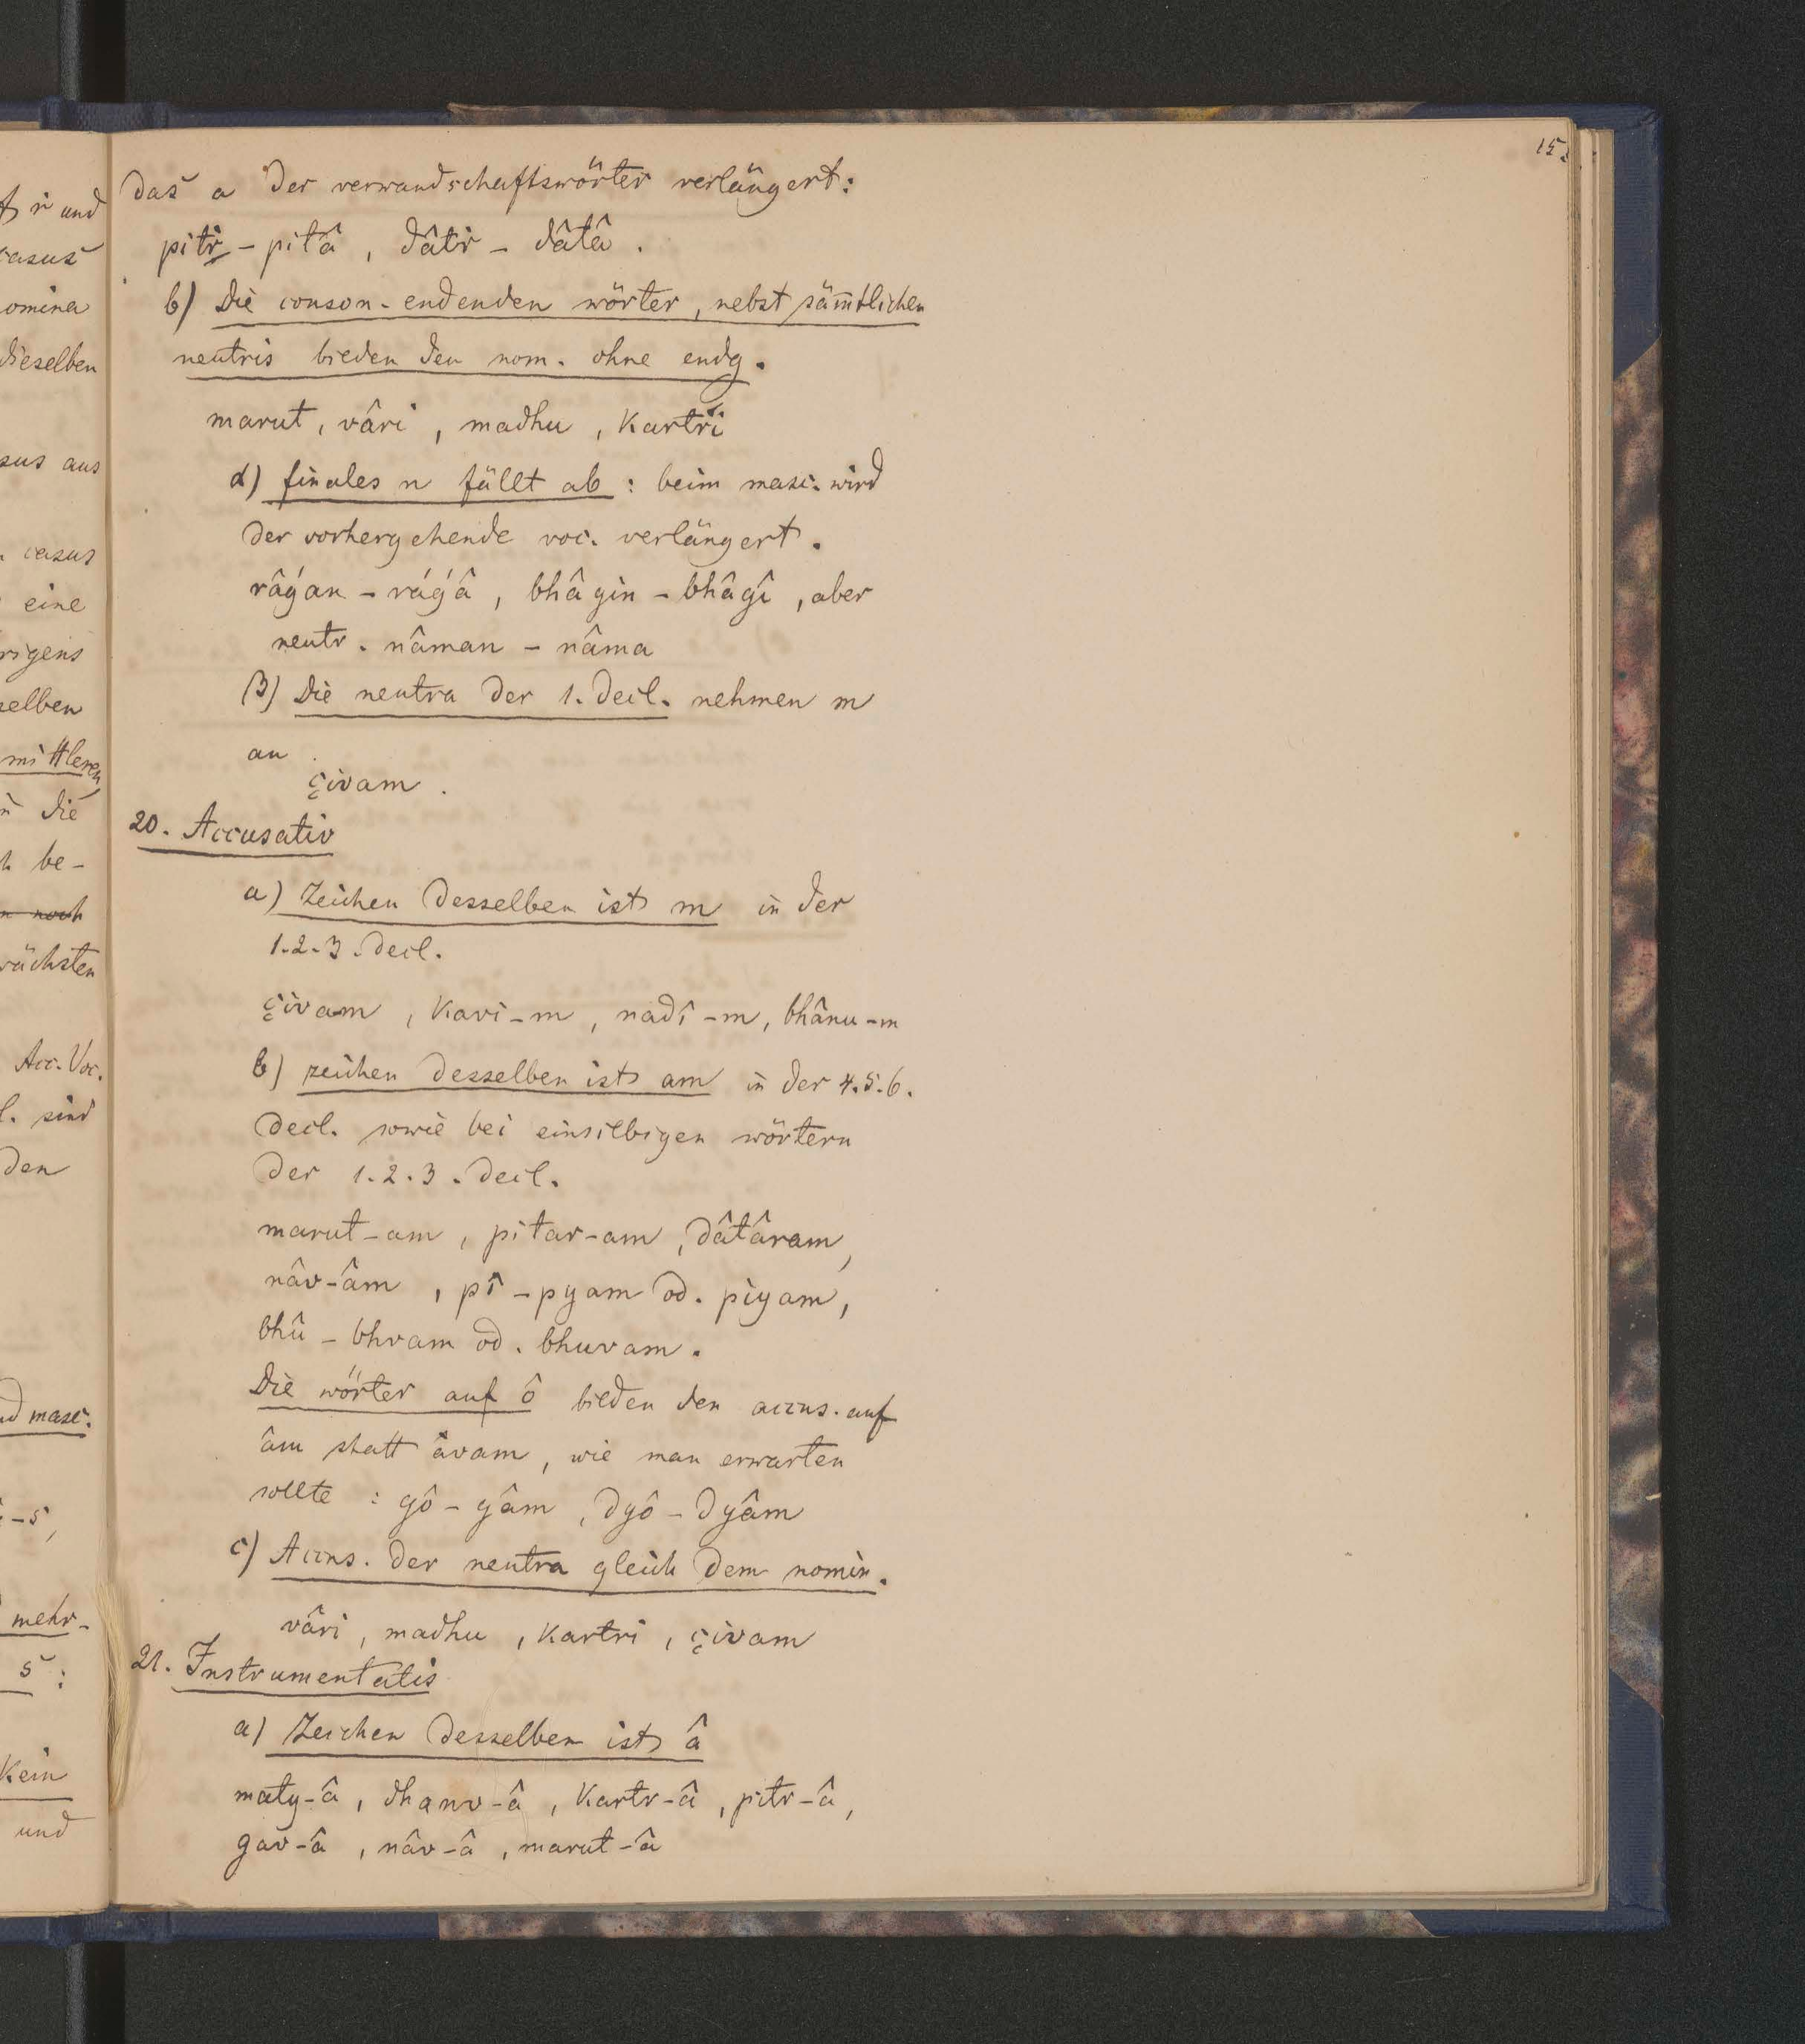 15.
das a der verwandschaftswörter verlängert:
pitṛ - pitâ, dâtṛ - dâtâ.
b) Die conson-endenden wörter, nebst säm̄tlichen
neutris bieden den nom. ohne endg.
marut, vâri, madhu, kartṛi
α) finales n fällt ab: beim masc. wird
der vorhergehende voc. verlängert.
râǵan - ráǵâ, bhâgin - bhâgî, aber
neutr. nâman - nâma
β) Die neutra der 1. decl. nehmen m
an.
çivam.
20. Accusativ
a) Zeichen desselben ist m in der
1.2.3. decl.
çivam, kavi-m, nadî-m, bhânu-m
b) zeichen desselben ist am in der 4.5.6.
decl. sowie bei einsilbigen wörtern
der 1.2.3. decl.
marut-am, pitar-am, dâtâram,
nâv-âm, pî - pyam od. piyam,
bhû - bhvam od. bhuvam.
Die wörter auf ô bilden den accus. auf
âm statt âvam, wie man erwarten
sollte: gô - gâm, dyô - dyâm
c) Accus. der neutra gleich dem nomin.
vâri, madhu, kartri, çivam
21. Instrumentalis
a) Zeichen desselben ist â
maty-â, dhanv-â, kartr-â, pitr-â,
gav-â, nâv-â, marut-â
und
casus
omina
dieselben
sus aus
casus
eine
rigens
selben
mittleren
die
be-
noch
ächsten
Acc. Voc.
l. sind
den
masc.
-s,
mehr-
s:
kein
und